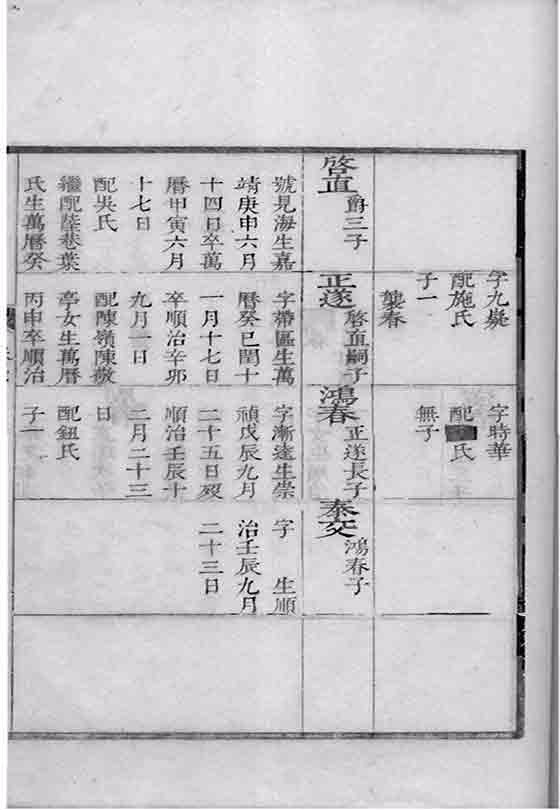 啓直
爵三子
號見海生嘉
靖庚申六月
十四日卒萬
曆甲寅六月
十七日
配吳氏
繼配陸巷葉
氏生萬曆癸
字九嶷
配施氏
子一
襲春
正遂
啓直嗣子
字帶區生萬
曆癸巳閏十
一月十七日
卒順治辛卯
九月一日
配陳嶺陳敬
亭女生萬曆
丙申卒順治
字時華
配 氏
無子
鴻春
正遂長子
字漸逵生崇
禎戊辰九月
二十五日歿
順治壬辰十
二月二十三
日
配鈕氏
子一
泰交
鴻春子
字 生順
治壬辰九月
二十三日